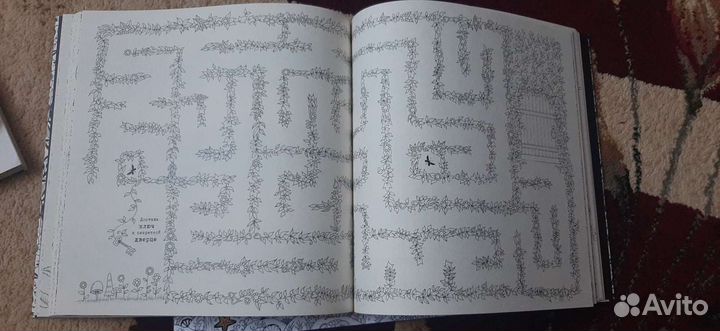 Доставь
ключ
к секретной
дверце
Avito